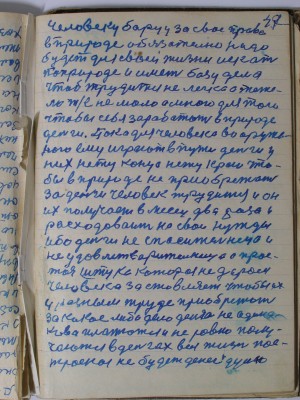 47
Человеку борцу за свое право
в природе обязательно надо
будет для своей жизни искать
в природе и иметь базу дела
чтоб трудится не легко а тяже-
ло т/е не мало а много для того
чтобы себя заработать в природе
деньги. Пока для человека во окруже
ного ему играют в пути деньги у
них нету конца нету краю что-
бы в природе не приобретать
За деньги человек трудится и он
их получает в месяц два раза и
расходовать на свои нужды
ибо деньги не спасительница и
не удовлетворительница а прос-
тая штука которая не даром
человека заставляет чтобы их
в разным труде приобретать
За какое либо дело деньга не одина-
кова платится и не ровно полу-
чается в деньгах вся жизнь пос-
троеная не будет денег